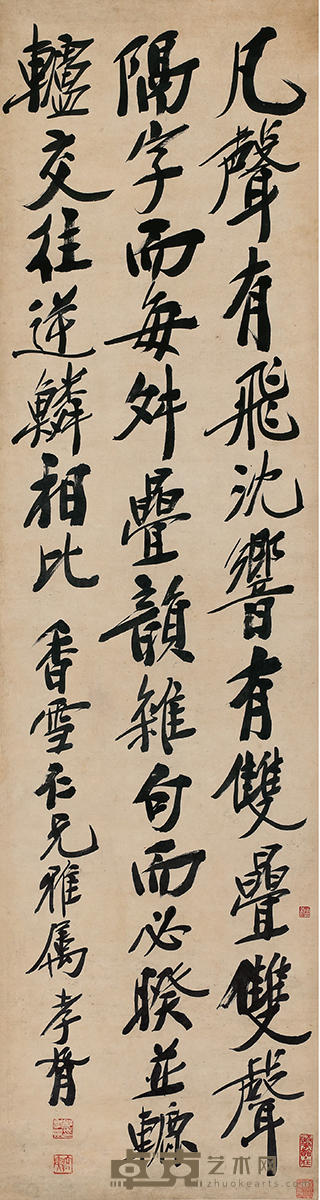 凡聲有飛沈響有雙疊雙聲
隔字而每舛疊韻雜句而必睽並轆
轤交往逆鱗相比 香雪仁兄雅屬 孝胥
卓克艺术网
zhuokearts.com